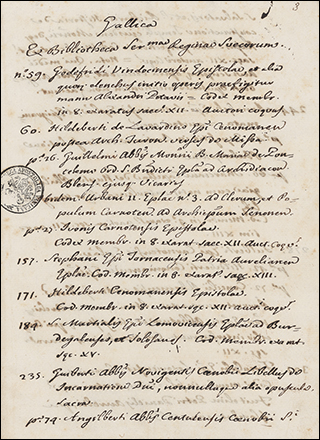 3
Gallica
Ex Bibliotheca Ser.mae Reginae Suecorum.
n.59. Godefridi Vindocinensis Epistolae, et alia
quor. elenchus initio operis praefigitur
manu Alexandri Petavii - Codex membr.
in 8. exaratus saec. XII - Auctori coaevus
60. Hildeberti de Lavardino Epi Cenomanen
postea Archiepi Turon. versus de Missa
p. 26. Guillelmi Abbis B. Mariae de
S. Bndicti Epla ad Archidiacon
Blesen. ejusq. Vicarios
Urbani II. Eplae n.° 3. ad Clerum, et Po-
pulum Carnoten, ad Archiepum Senonen.
Ivonis Carnotensis Epistolae
Codex membr. in 8. exarat. saec. XII. Auct. Coaev.
157. Stephani Epi Tornacensis Patria Aurelianen
Eplae. Cod. Membr. in 8. exarat. saec. XII.
171. Hildeberti Cenomanensis Epistolae.
Cod. membr. in 8. exarat. saec. XII. auct. coaev.
184. S. Martialis Epi Lemovicensis Eplae ad Bur-
degalenses, et Tolosanos. Cod. Membr. exarat.
saec. XV.
235. Guiberti Abbis Novigenti Coenobii Libellus de
Incarnatione Dni, nonnullaque alia opuscula
sacra.
p. 74. Angilberti Abbis Centulensis Coenobii S.i